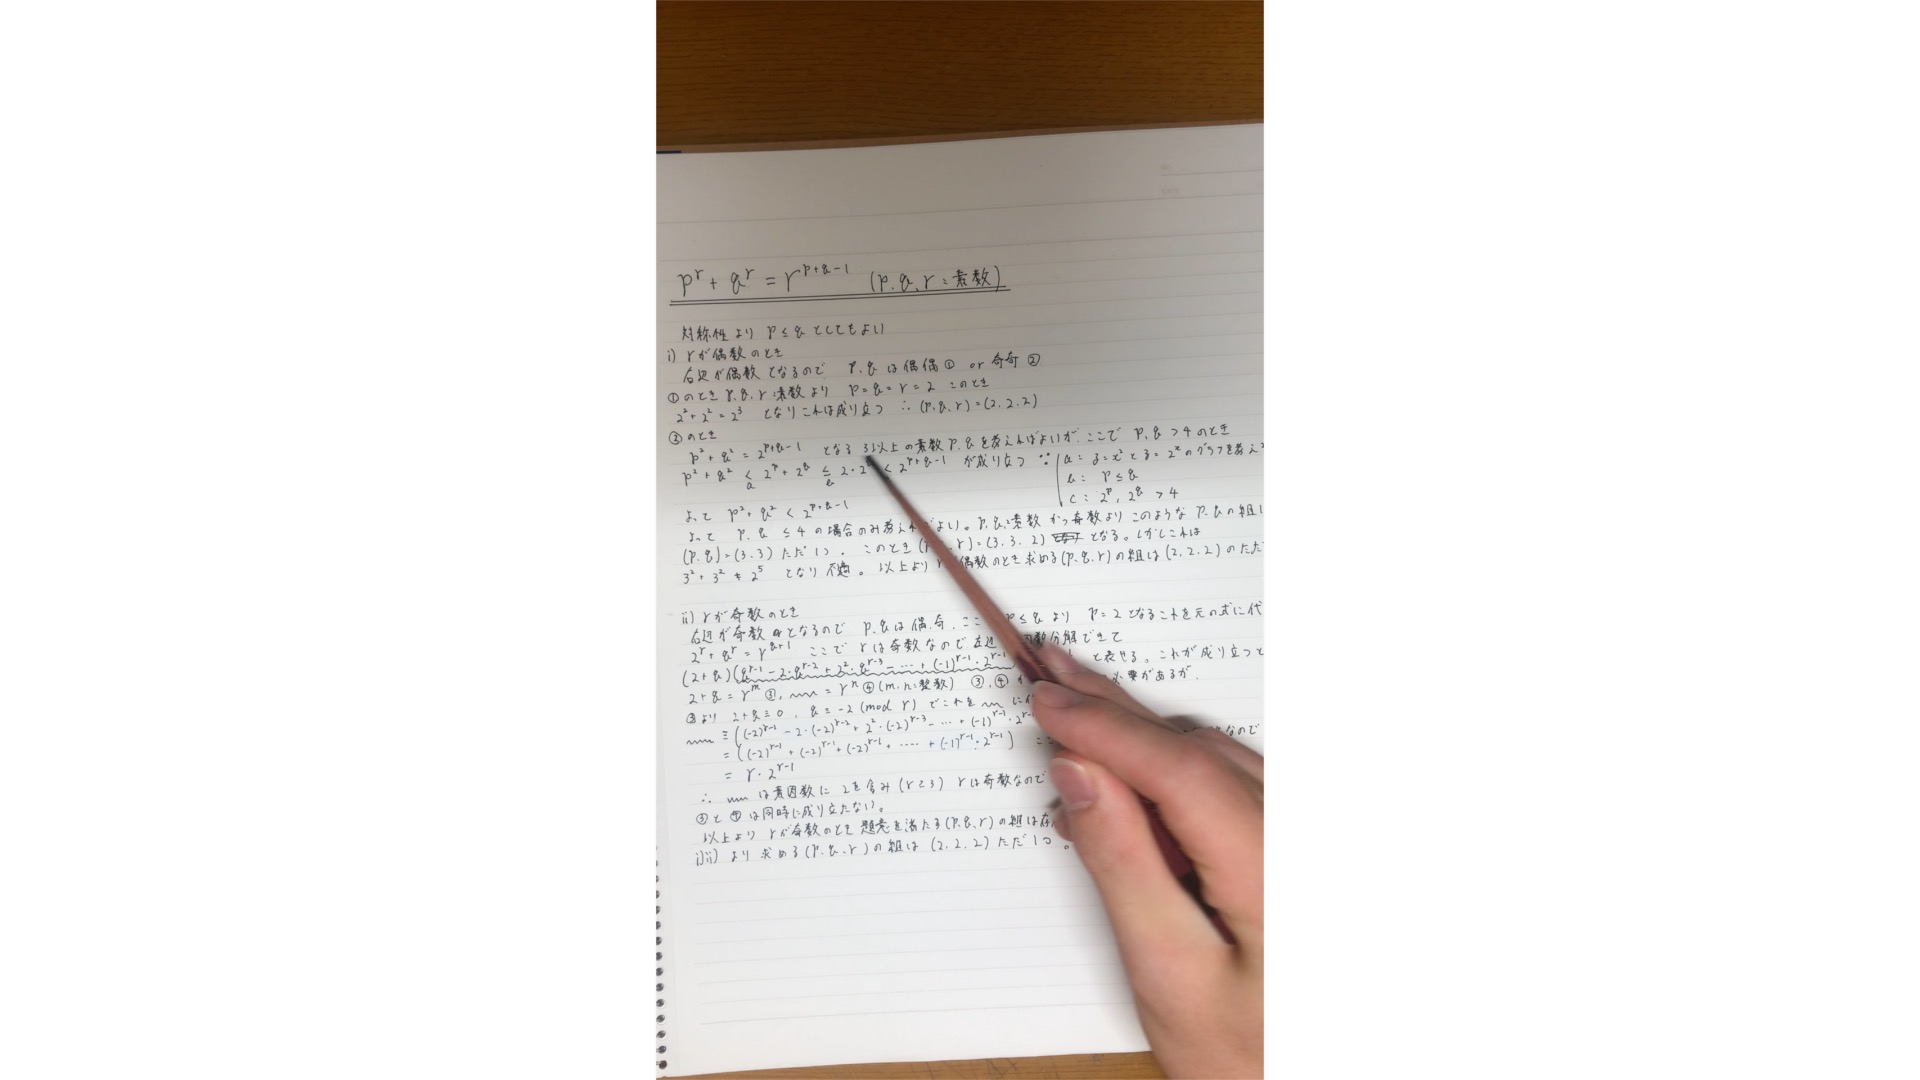 p^r + q^r = r^{p+q-1} (p, q, r : 素数)
対称性より p ≦ q としてもよい
i) rが偶数のとき
右辺が偶数となるので p, q は偶偶① or 奇奇②
①のとき p, q, r : 素数より p = q = r = 2 このとき
2^2 + 2^2 = 2^3 となりこれは成り立つ ∴ (p, q, r) = (2, 2, 2)
②のとき
p^2 + q^2 = 2^{p+q-1} となる 3以上の素数 p, q を考えればよいが、ここで p, q > 4 のとき
p^2 + q^2 < 2^p + 2^q ≦ 2・2 < 2^{p+q-1} が成り立つ ∵ a : y = x^2 と y = 2^x のグラフを考え
a b
b : p ≦ q
c : 2^p, 2^q > 4
よって p^2 + q^2 < 2^{p+q-1}
よって p, q ≦ 4 の場合のみ考えればよい。p, q : 素数 かつ奇数より このような p, q の組
(p, q) = (3, 3) ただ1つ。このとき (p, r) = (3, 3, 2) となる。しかしこれは
3^2 + 3^2 ≠ 2^5 となり不適。以上より r 偶数のとき求める (p, q, r) の組は (2, 2, 2) のただ
ii) rが奇数のとき
右辺が奇数となるので p, q は偶, 奇、ここ p ≦ q より p = 2 となるこれを元の式に代
2^r + q^r = r^{q+1} ここで rは奇数なので左辺 因数分解できて
(2+q)(q^{r-1} - 2・q^{r-2} + 2^2・q^{r-3} - … + (-1)^{r-1}・2^{r-1} と表せる。これが成り立つと
2+q = r^m ③, = r^n ④ (m, n : 整数) ③, ④ が 必要があるが、
③より 2+q ≡ 0, q ≡ -2 (mod r) でこれを に
≡ ((-2)^{r-1} - 2・(-2)^{r-2} + 2^2・(-2)^{r-3} - … + (-1)^{r-1}・2^{r-1}
= ((-2)^{r-1} + (-2)^{r-1} + (-2)^{r-1} + …… + (-1)^{r-1}・2^{r-1}) なので
= r・2^{r-1}
∴ は素因数に 2を含み (r ≧ 3) rは奇数なので
③と④は同時に成り立たない。
以上より rが奇数のとき 題意を満たす (p, q, r) の組は存
i)ii) より 求める (p, q, r) の組は (2, 2, 2) ただ1つ。